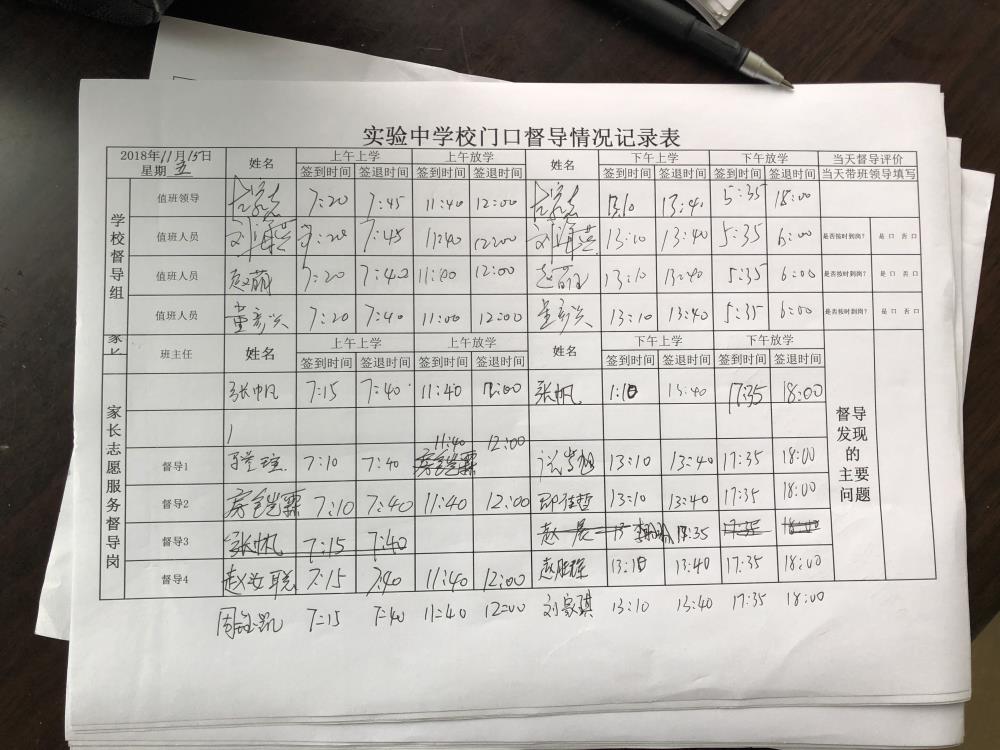 实验中学校门口督导情况记录表
2018年11月15日 星期五 姓名 上午上学 上午放学 姓名 下午上学 下午放学 当天督导评价
签到时间 签退时间 签到时间 签退时间 签到时间 签退时间 签到时间 签退时间 当天带班领导填写
学校督导组
值班领导 7:20 7:45 11:40 12:00 13:10 13:40 5:35 18:00
值班人员 刘海燕 7:20 7:45 11:40 12:00 刘海燕 13:10 13:40 5:35 6:00 是否按时到岗? 是 口 否 口
值班人员 赵萌 7:20 7:40 11:00 12:00 13:10 13:40 5:35 6:00 是否按时到岗? 是 口 否 口
值班人员 董彦兴 7:20 7:40 11:00 12:00 董彦兴 13:10 13:40 5:35 6:00 是否按时到岗? 是 口 否 口
家长
班主任 姓名 上午上学 上午放学 姓名 下午上学 下午放学
签到时间 签退时间 签到时间 签退时间 签到时间 签退时间 签到时间 签退时间
家长志愿服务督导岗
张帆 7:15 7:40 11:40 12:00 张帆 1:10 13:40 17:35 18:00
督导发现的主要问题
11:40 12:00
督导1 7:10 7:40 13:10 13:40 17:35 18:00
督导2 7:10 7:40 11:40 12:00 13:10 13:40 17:35 18:00
督导3 张帆 7:15 7:40 赵 17:35 18:00
督导4 赵汝聪 7:15 7:40 11:40 12:00 赵胜辉 13:10 13:40 17:35 18:00
周钰凯 7:15 7:40 11:40 12:00 刘家琪 13:10 13:40 17:35 18:00